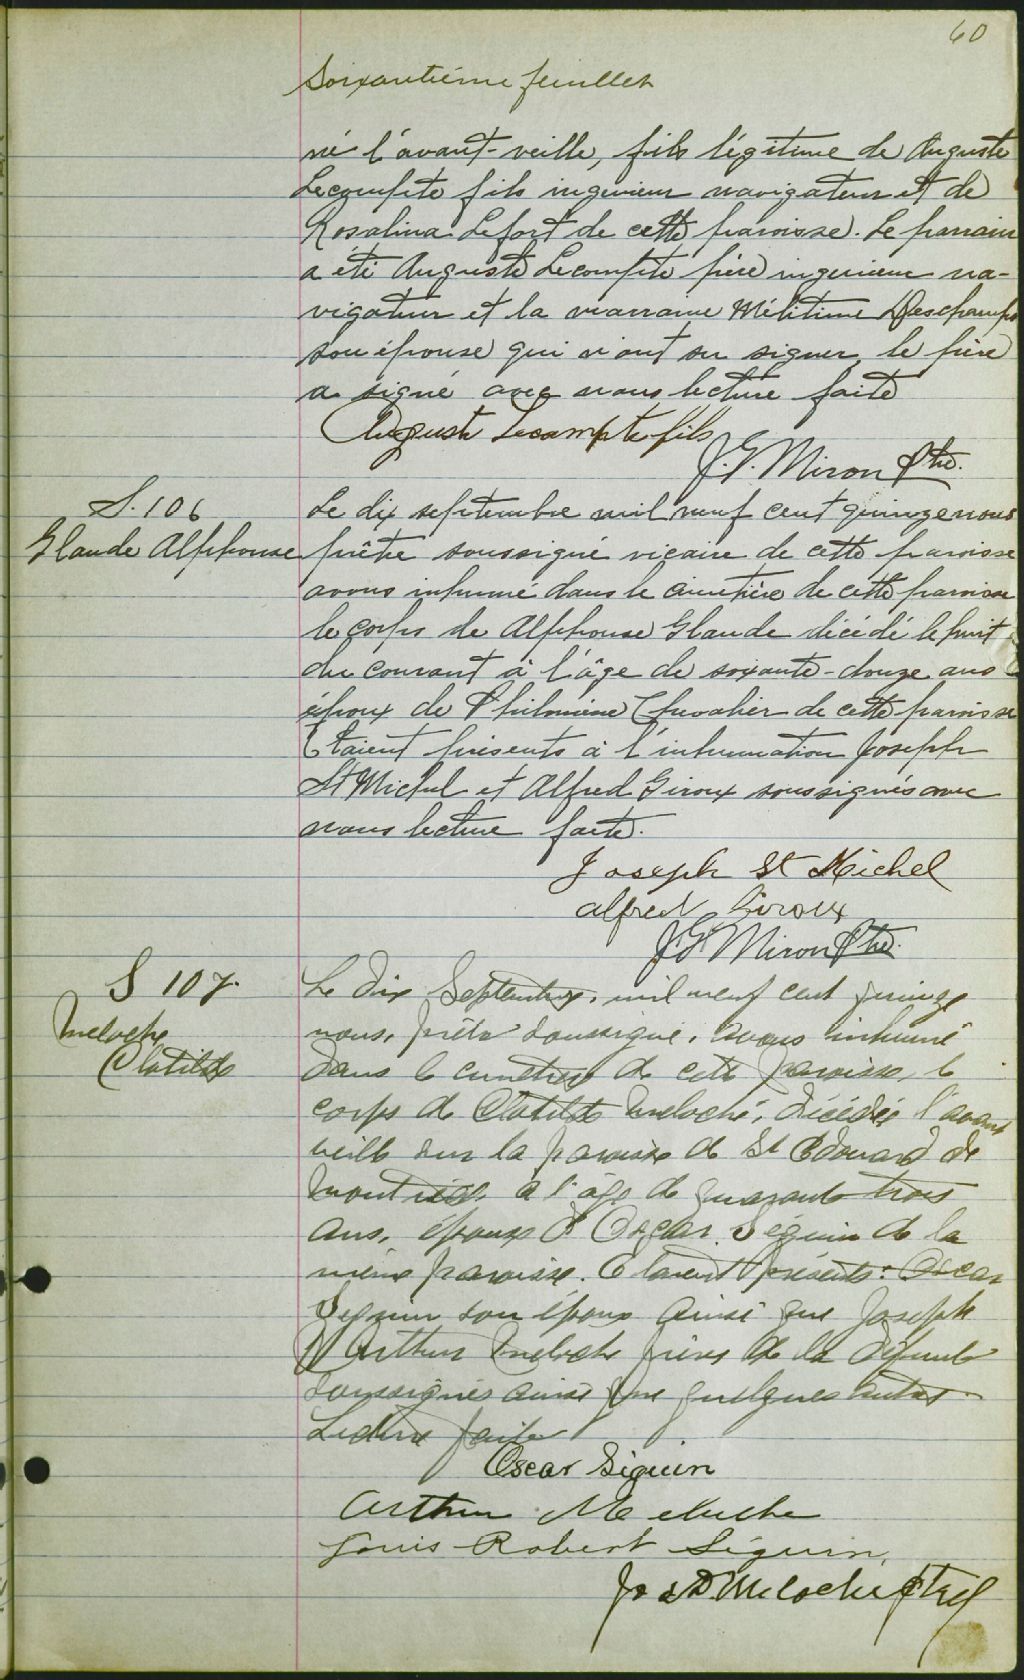 60
Soixantième feuillet
né l'avant-veille, fils légitime de Auguste
Lecompte fils ingenieur navigateur et de
Rosalina Lefort de cette paroisse. Le parrain
a été Auguste Lecompte père ingenieur na-
vigateur et la marraine Mélitime Deschamps
son épouse qui n'ont su signer, le père
a signé avec nous lecture faite
Auguste Lecompte fils
J.G. Miron Ptre.
S. 106
Glaude Alphonse
Le dix septembre mil neuf cent quinze nous
prêtre soussigné vicaire de cette paroisse
avons inhumé dans le cimetière de cette paroisse
le corps de Alphonse Glaude décédé le huit
du courant à l'âge de soixante-douze ans
époux de Philomène Chevalier de cette paroisse
Etaient présents à l'inhumation Joseph
St Michel et Alfred Giroux soussignés avec
nous lecture faite.
Joseph St Michel
alfred Giroux
J.G. Miron Ptre.
S 107.
Meloche
Clotilde
Le dix Septembre, mil neuf cent quinze
nous, prêtre soussigné, avons inhumé
dans le cimetière de cette paroisse, le
corps de Clotilde Meloche, décédée l'avant
veille sur la paroisse de St Edouard de
Montréal, à l'âge de quarante trois
ans, épouse d'Oscar Séguin de la
même paroisse. Etaient présents: Oscar
Seguin son époux ainsi que Joseph
Arthur Meloche frère de la défunte
soussignés ainsi que quelques autres.
Lecture faite
Oscar Siguin
Arthur Meloche
Louis-Robert Séguin,
Jos D. Meloche ptre